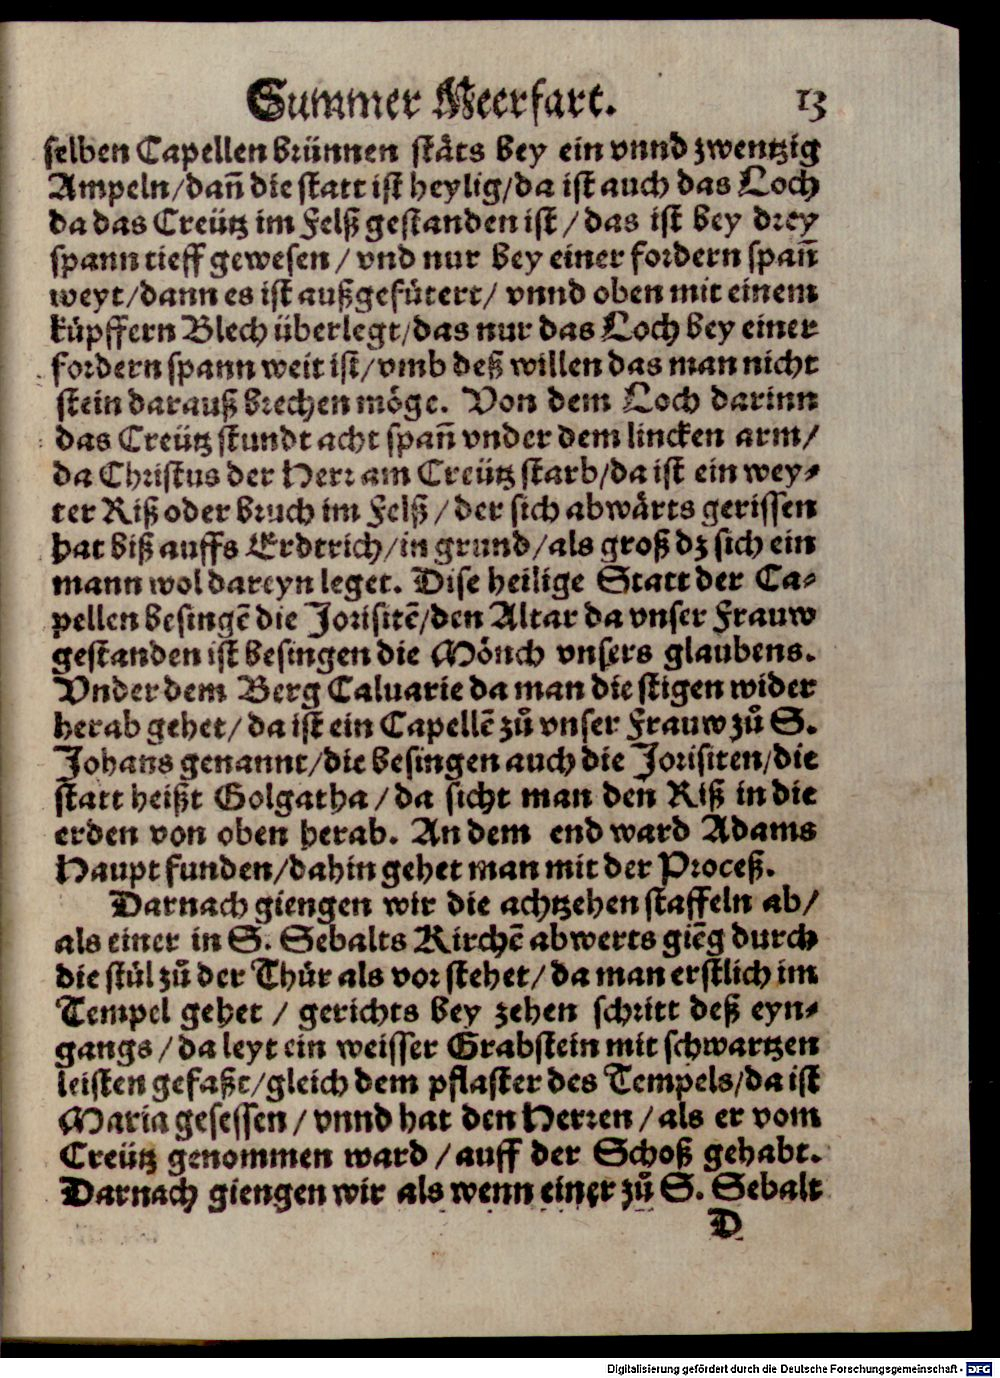 Summer Meerfart. 13
selben Capellen brünnen stäts bey ein vnnd zwentzig
Ampeln/dañ die statt ist heylig/da ist auch das Loch
da das Creütz im Felß gestanden ist / das ist bey drey
spann tieff gewesen / vnd nur bey einer fordern spañ
weyt/dann es ist außgefütert/ vnnd oben mit einem
küpffern Blech überlegt/das nur das Loch bey einer
fordern spann weit ist/vmb deß willen das man nicht
stein darauß brechen möge. Von dem Loch darinn
das Creütz stundt acht spañ vnder dem lincken arm/
da Christus der Herr am Creütz starb/da ist ein wey-
ter Riß oder bruch im Felß / der sich abwärts gerissen
hat biß auffs Erdtrich/in grund/als groß dz sich ein
mann wol dareyn leget. Dise heilige Statt der Ca-
pellen besingẽ die Jorisitẽ/den Altar da vnser Frauw
gestanden ist besingen die Mönch vnsers glaubens.
Vnder dem Berg Caluarie da man die stigen wider
herab gehet/ da ist ein Capellẽ zů vnser Frauw zů S.
Johans genannt/die besingen auch die Jorisiten/die
statt heißt Golgatha / da sicht man den Riß in die
erden von oben herab. An dem end ward Adams
Haupt funden/dahin gehet man mit der Proceß.
Darnach giengen wir die achtzehen staffeln ab/
als einer in S. Sebalts Kirchẽ abwerts giẽg durch
die stül zů der Thür als vor stehet/ da man erstlich im
Tempel gehet / gerichts bey zehen schritt deß eyn-
gangs / da leyt ein weisser Grabstein mit schwartzen
leisten gefaßt/gleich dem pflaster des Tempels/da ist
Maria gesessen / vnnd hat den Herren / als er vom
Creütz genommen ward / auff der Schoß gehabt.
Darnach giengen wir als wenn einer zů S. Sebalt
D
Digitalisierung gefördert durch die Deutsche Forschungsgemeinschaft - DFG